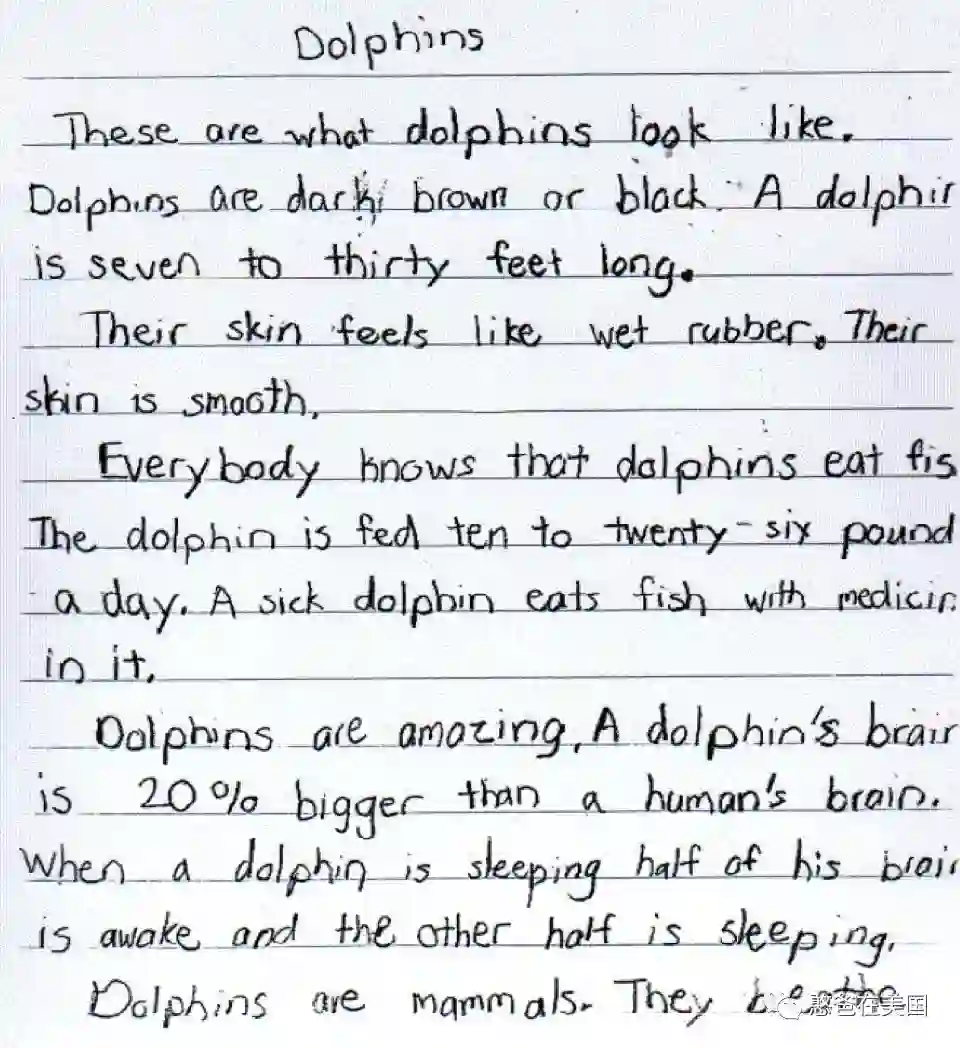 Dolphins
These are what dolphins look like.
Dolphins are dark brown or black. A dolphin
is seven to thirty feet long.
Their skin feels like wet rubber. Their
skin is smooth.
Everybody knows that dolphins eat fis
The dolphin is fed ten to twenty-six pound
a day. A sick dolphin eats fish with medicin
in it.
Dolphins are amazing. A dolphin's brain
is 20% bigger than a human's brain.
When a dolphin is sleeping half of his brain
is awake and the other half is sleeping.
Dolphins are mammals. They
憨爸在美国